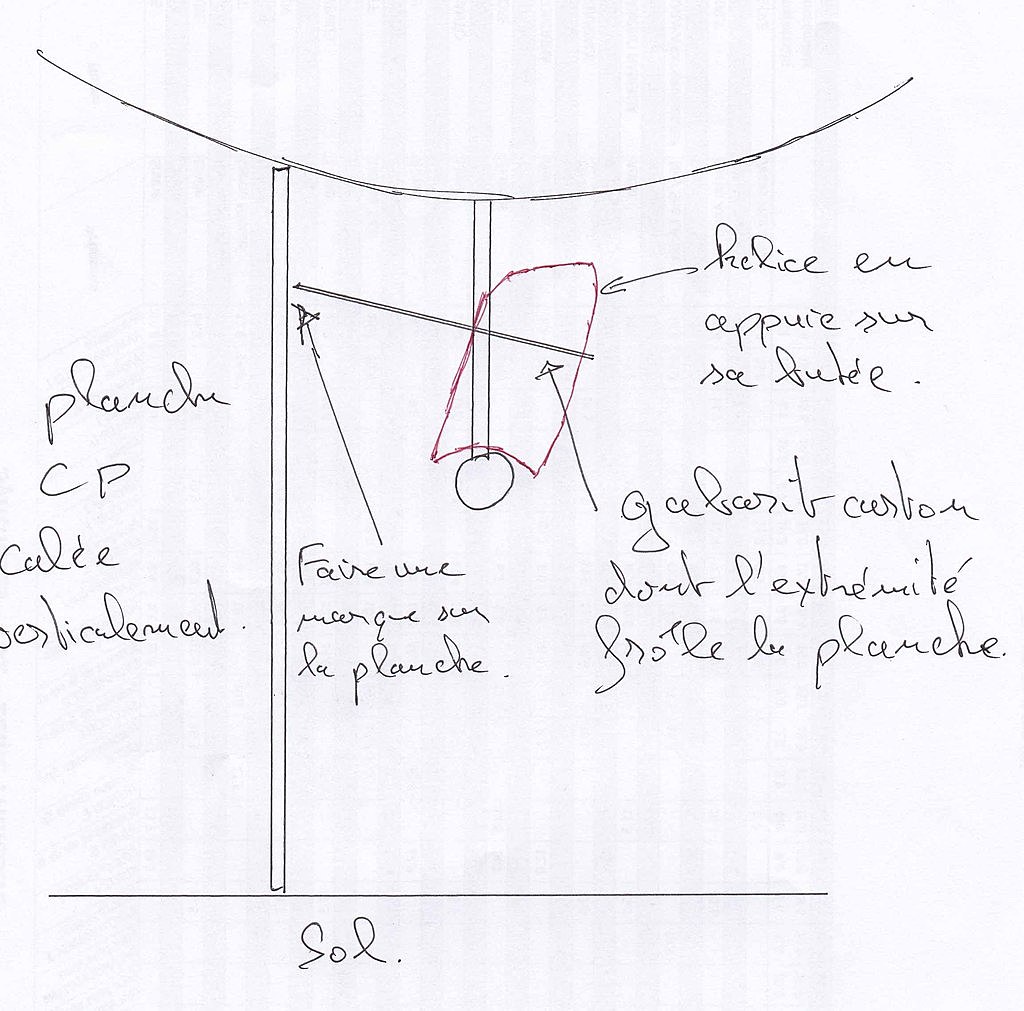 hélice en
appuie sur
sa butée.
planche
CP
calée
verticalement.
Faire une
marque sur
la planche.
gabarit carton
dont l'extrémité
frôle la planche.
Sol.